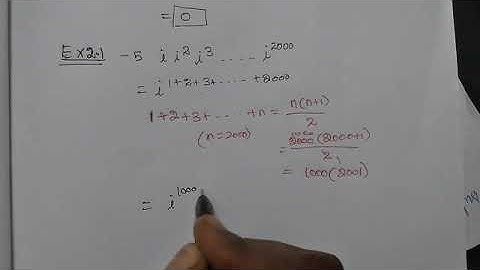 = 0
Ex 2.1 - 5 i i² i³ .... i²⁰⁰⁰
= i^1+2+3+.....+2000
1+2+3+....+n = n(n+1)/2
(n=2000) = 2000(2000+1)/2
= 1000(2001)
= i^1000